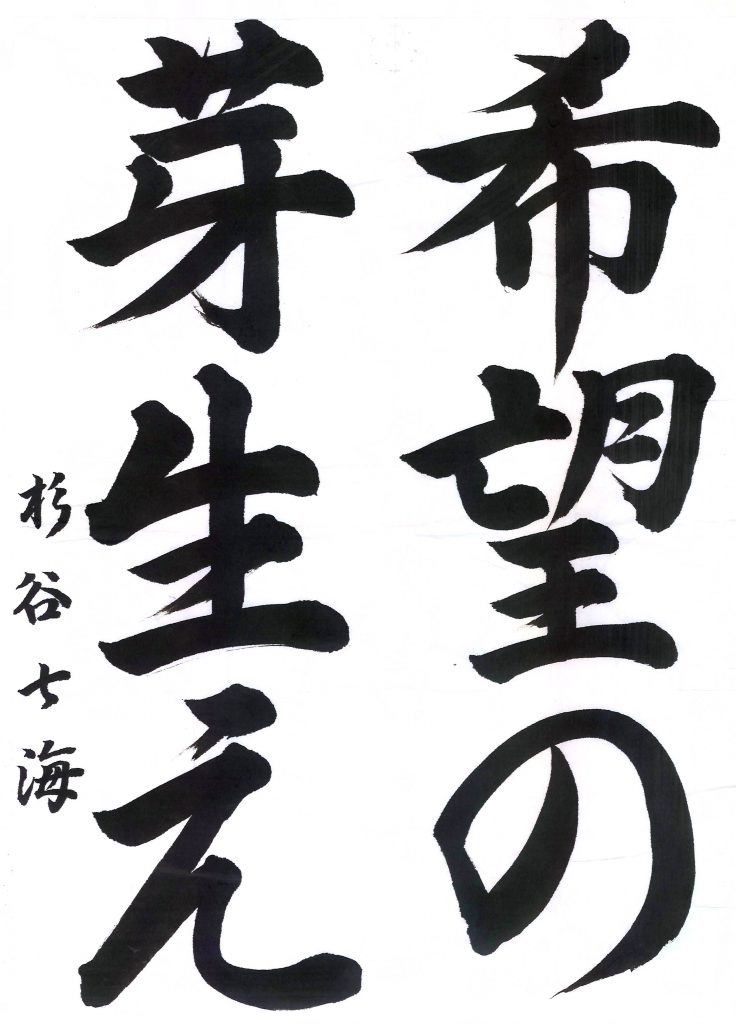 希望の
芽生え
杉谷七海